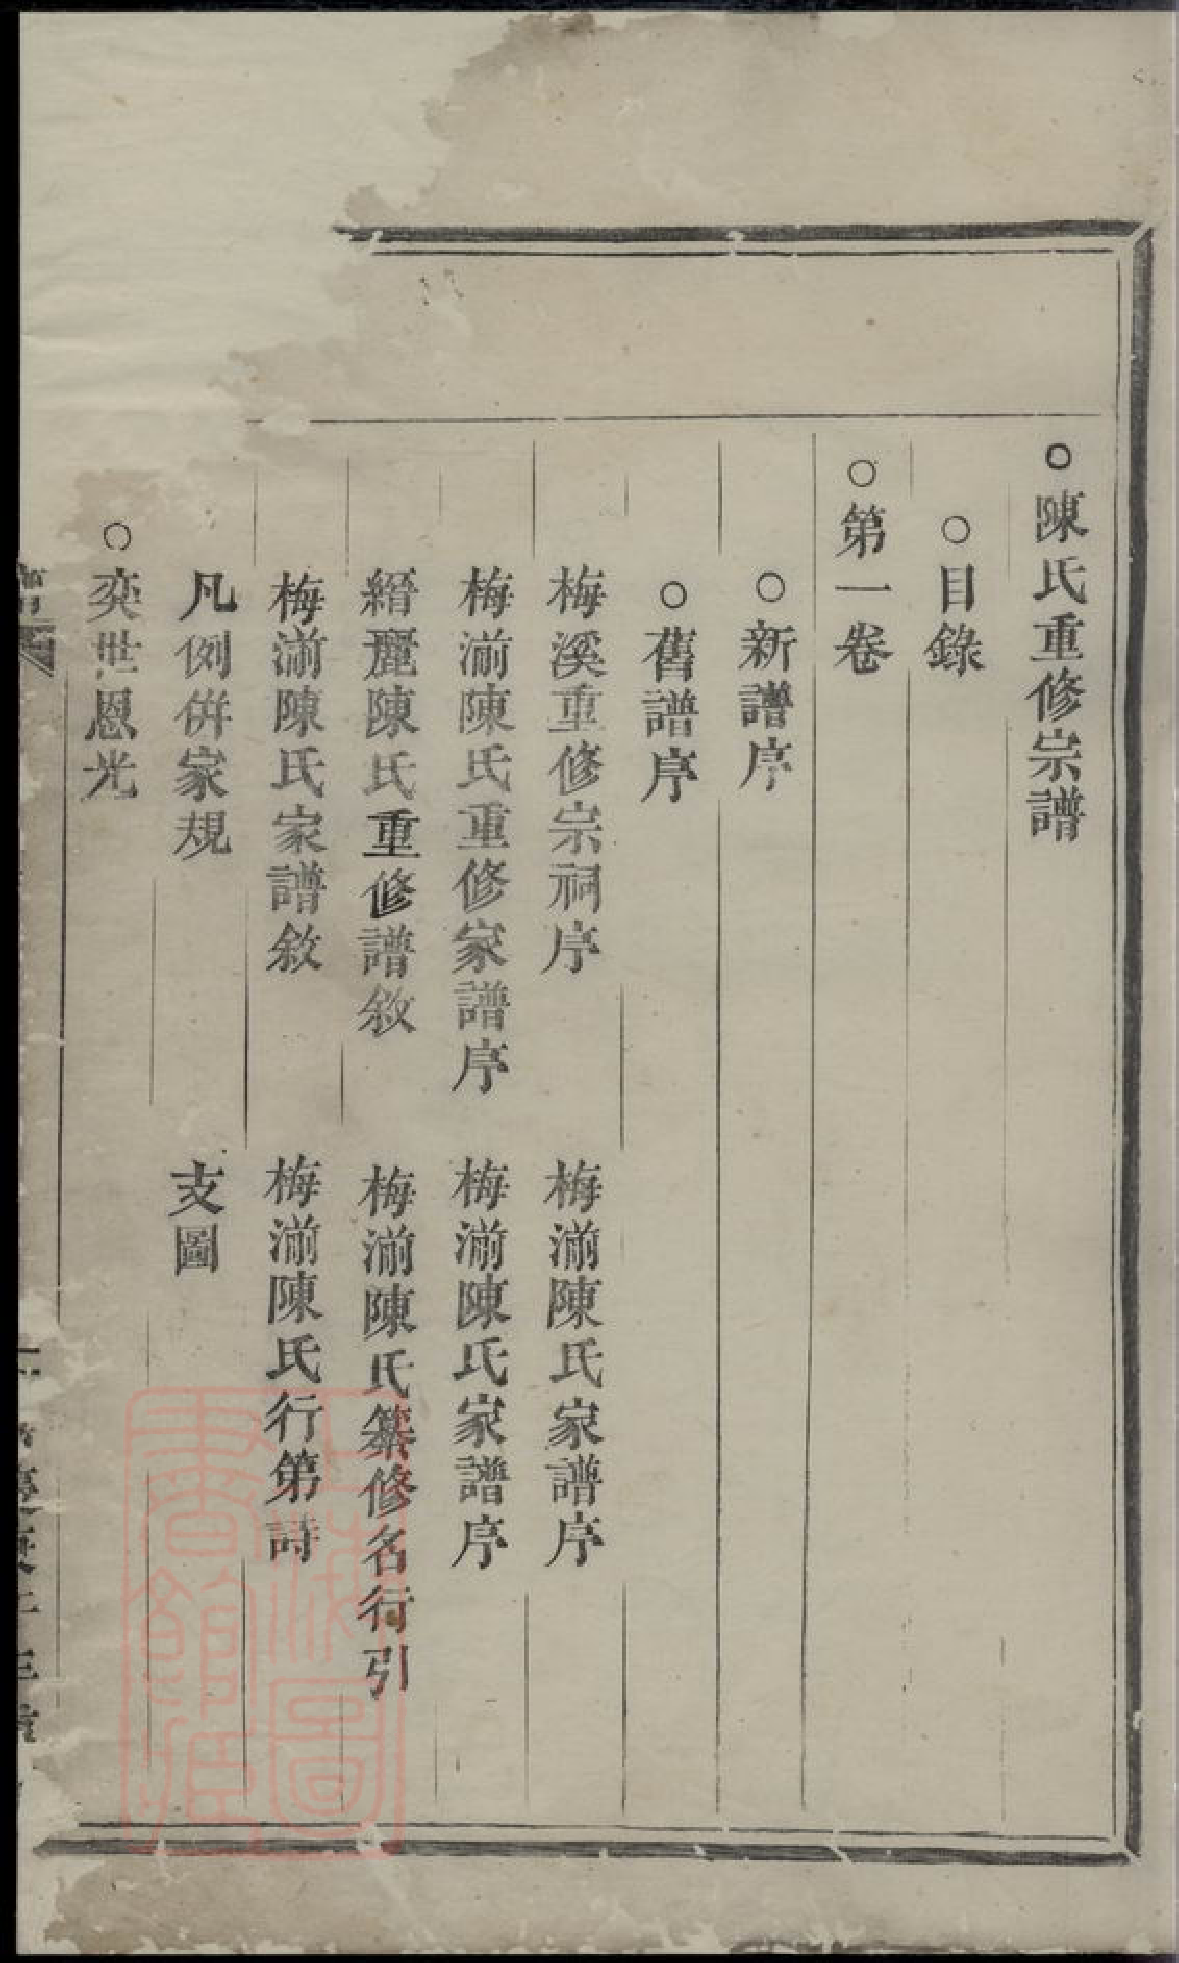 ○陳氏重修宗譜
○目錄
○第一卷
○新譜序
○舊譜序
梅溪重修宗祠序 梅㵎陳氏家譜序
梅㵎陳氏重修家譜序 梅㵎陳氏家譜序
縉麗陳氏重修譜敘 梅㵎陳氏纂修名行引
梅㵎陳氏家譜敘 梅㵎陳氏行第詩
凡例併家規 支圖
○奕世恩光
上海圖書館藏